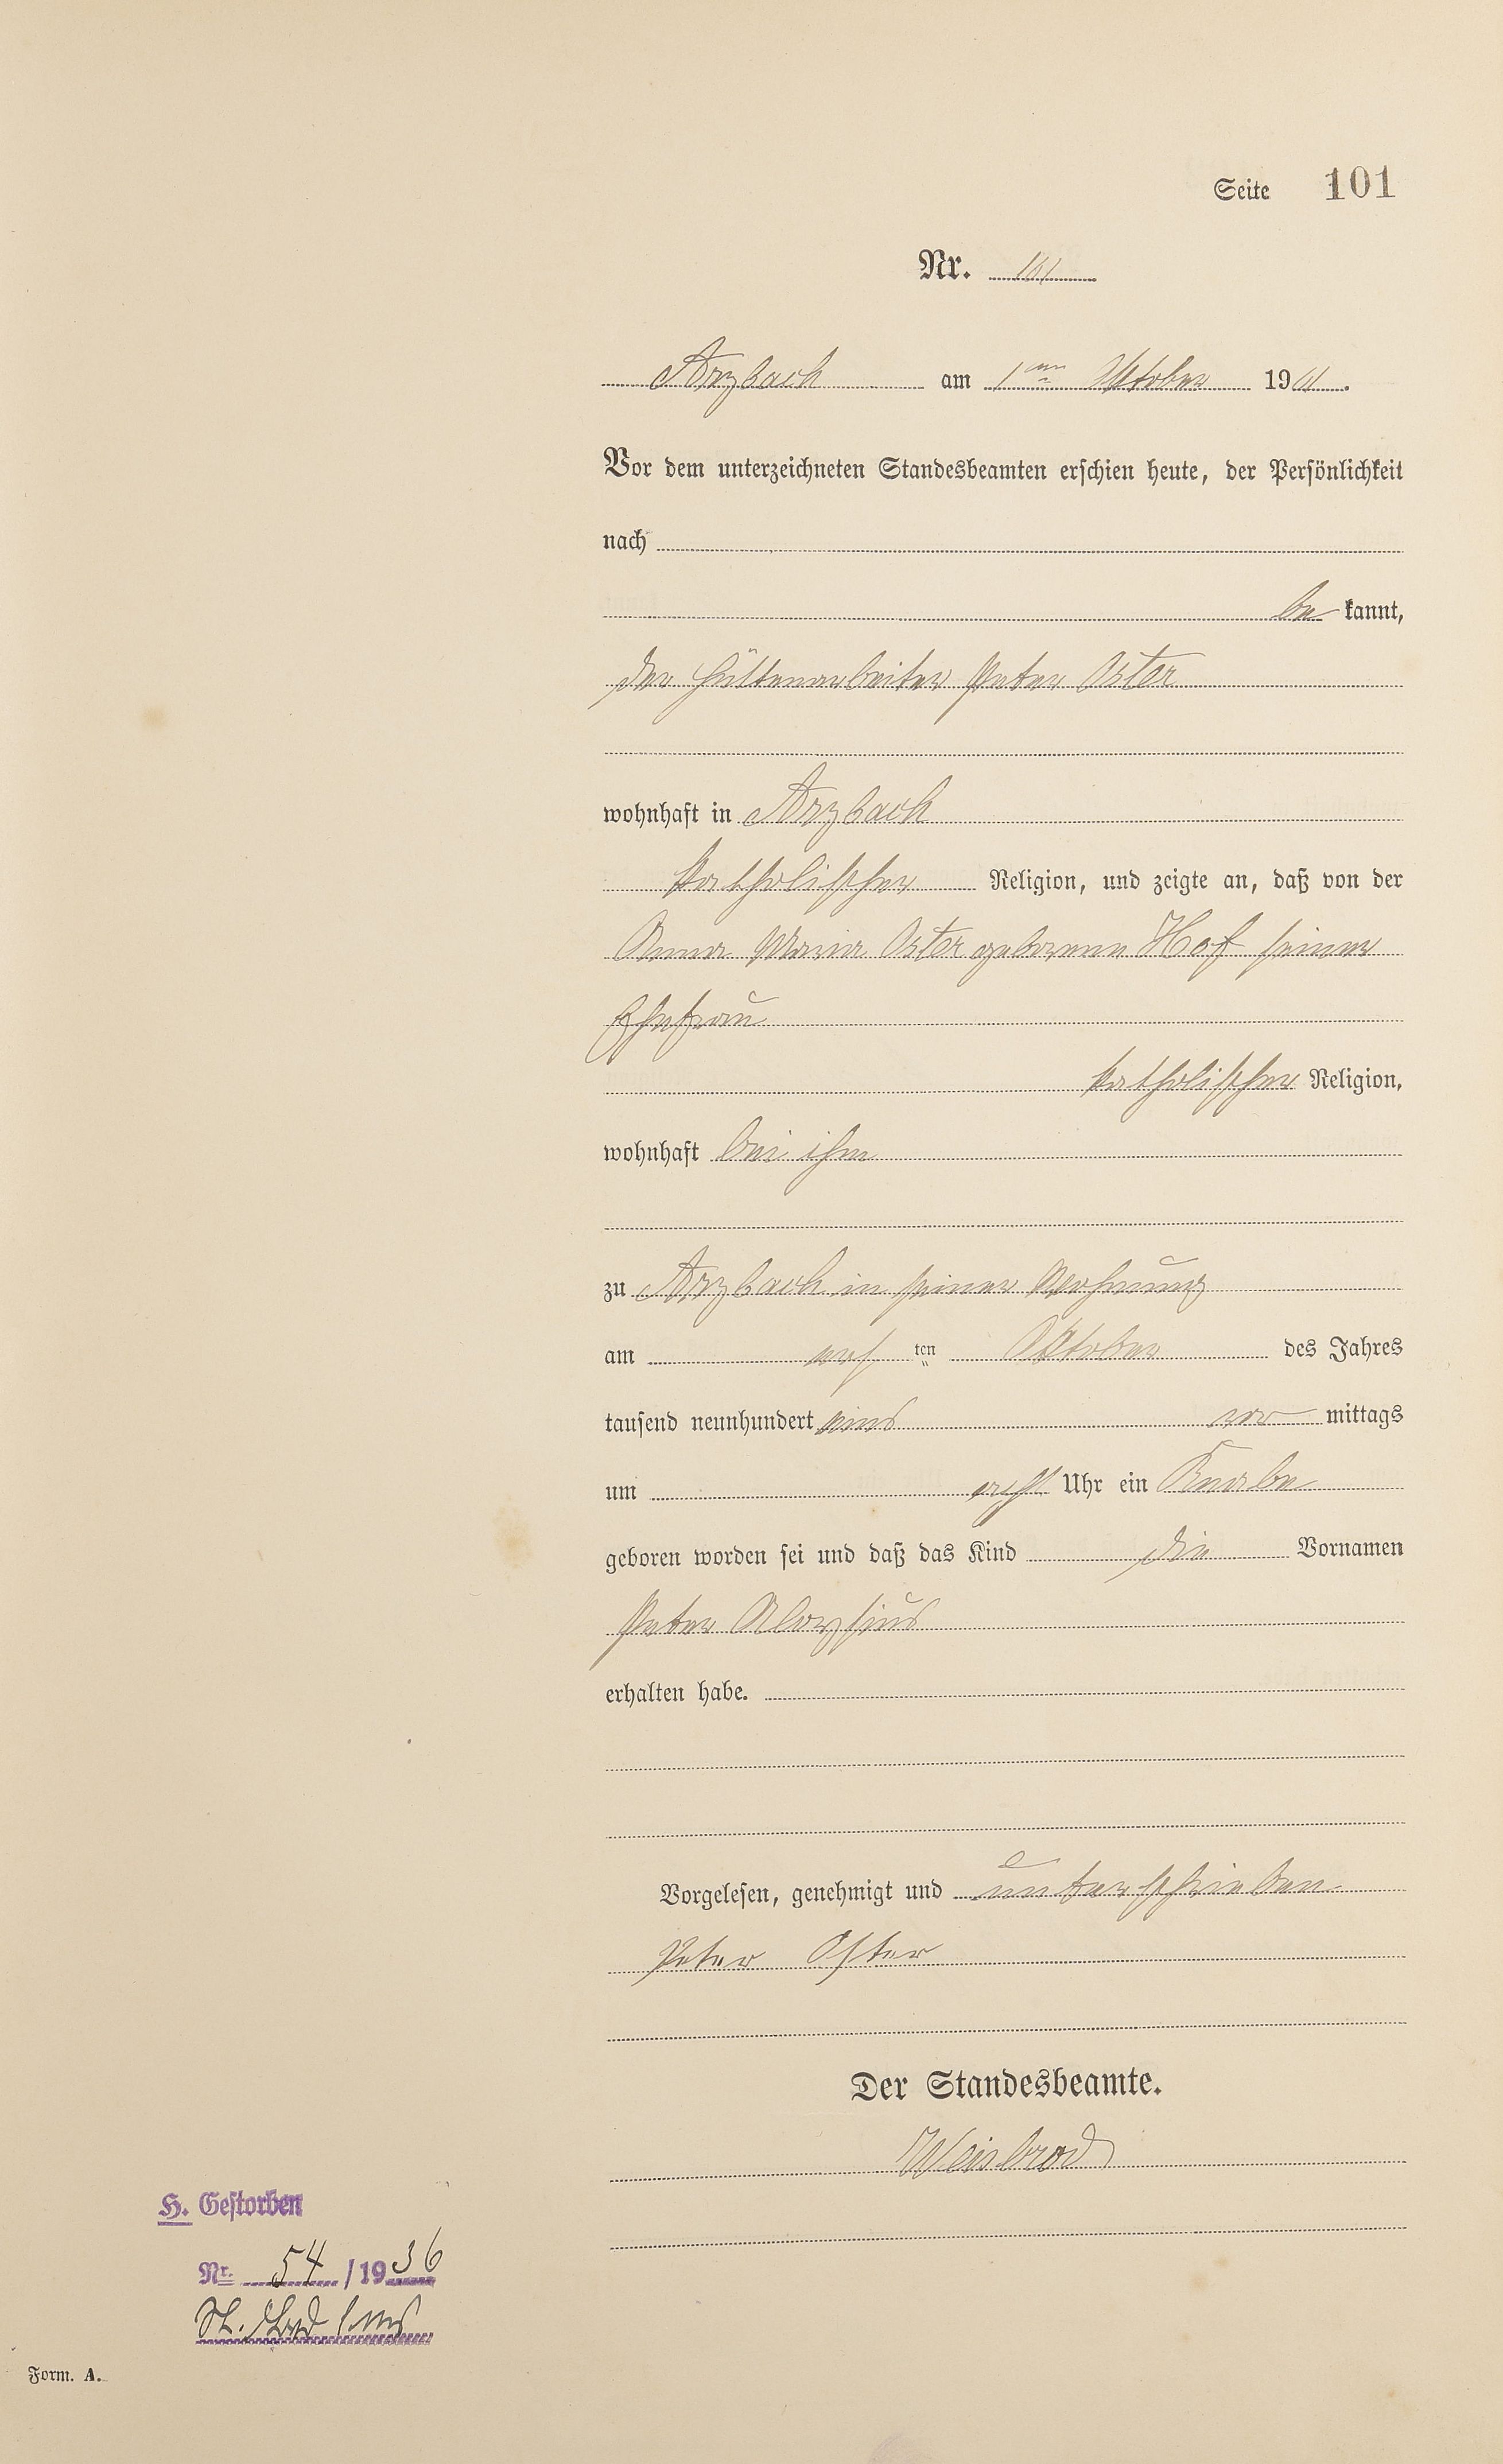 Seite 101
Nr. 101
Arzbach am 1ten Oktober 1901.
Vor dem unterzeichneten Standesbeamten erschien heute, der Persönlichkeit
nach
be kannt,
der Hüttenarbeiter Peter Oster
wohnhaft in Arzbach
katholischer Religion, und zeigte an, daß von der
Anna Maria Oster geborenen Hof seiner
Ehefrau
katholischer Religion,
wohnhaft bei ihm
zu Arzbach in seiner Wohnung
am ersten Oktober des Jahres
tausend neunhundert eins vor mittags
um acht Uhr ein Knabe
geboren worden sei und daß das Kind die Vornamen
Peter Aloysius
erhalten habe.
Vorgelesen, genehmigt und unterschrieben
Peter Oster
Der Standesbeamte.
Weisbrod
H. Gestorben
Nr. 54 / 1936
St. Bad Ems
Form. A.